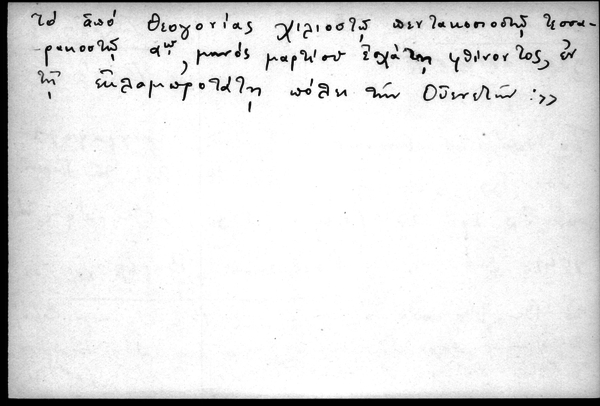 τῶ ἀπό θεογονίας χιλιοστῶ πεντακοσιοστῶ τεσσα-
ρακοστῶ α^ω, μηνός μαρτίου ἐσχάτη φθίνοντος, ἐν
τῆ ἐκλαμπροτάτη πόλει τῶν Οὐενετῶν :»